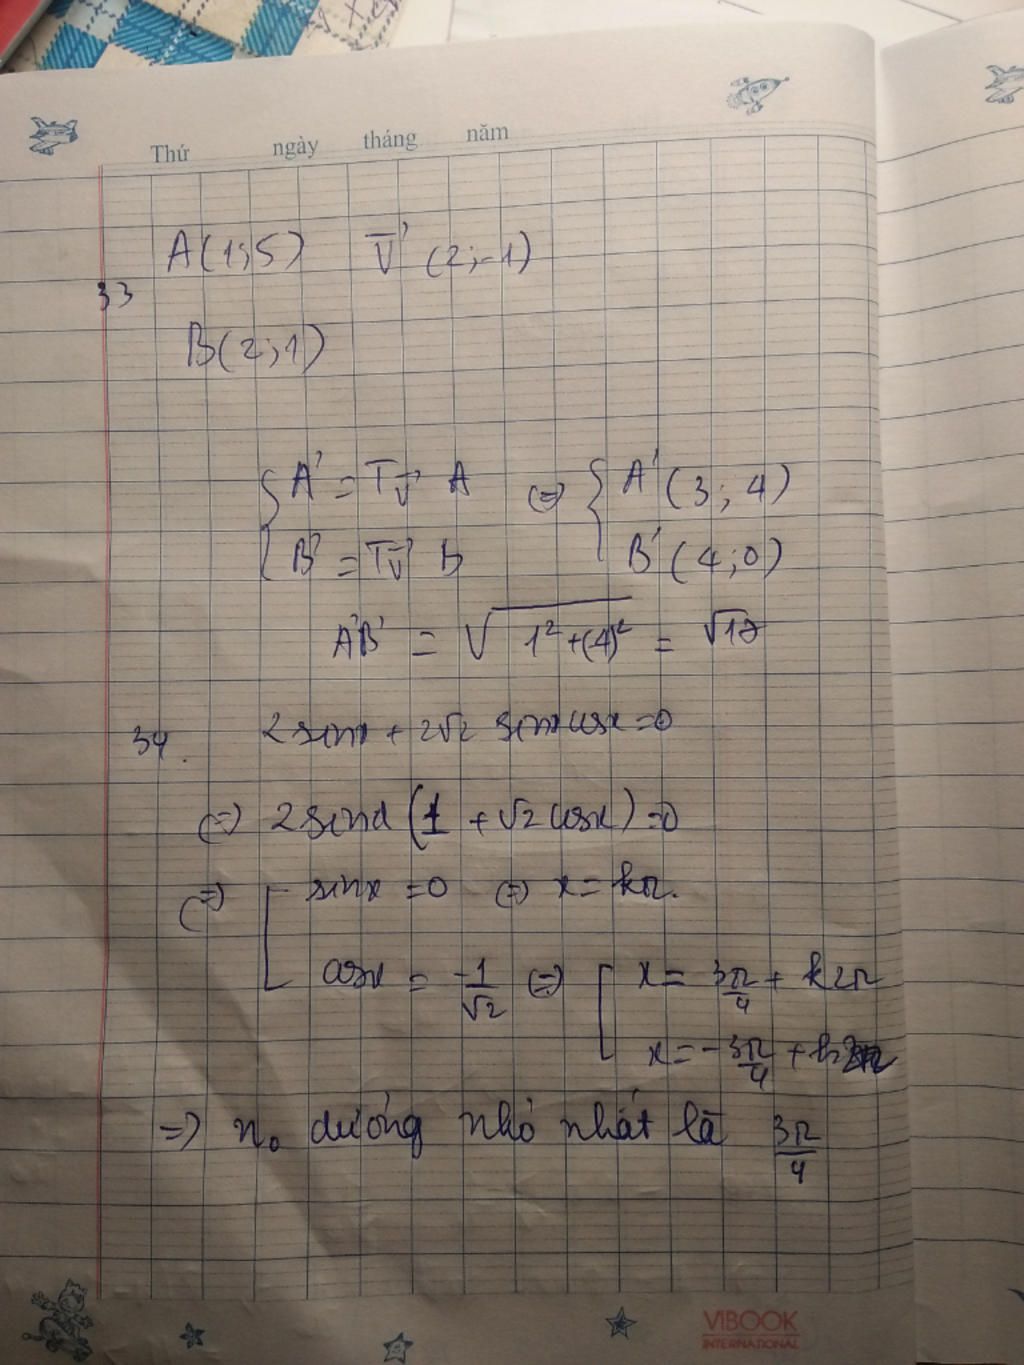 Thứ ngày tháng năm
A(1;5) v⃗ (2;-1)
33
B(2;1)
{ A' = Tv⃗ A (=) { A' (3; 4)
{ B' = Tv⃗ B { B' (4;0)
A'B' = √1²+(-4)² = √17
34. 2 sinx + 2√2 sinxcosx = 0
(=) 2 sinx (1 + √2 cosx) = 0
(=) [ sinx = 0 (=) x = kπ.
[ cosx = -1/√2 (=) [ x = 3π/4 + k2π
[ x = -3π/4 + k2π
=) no dương nhỏ nhất là 3π/4
VIBOOK
INTERNATIONAL